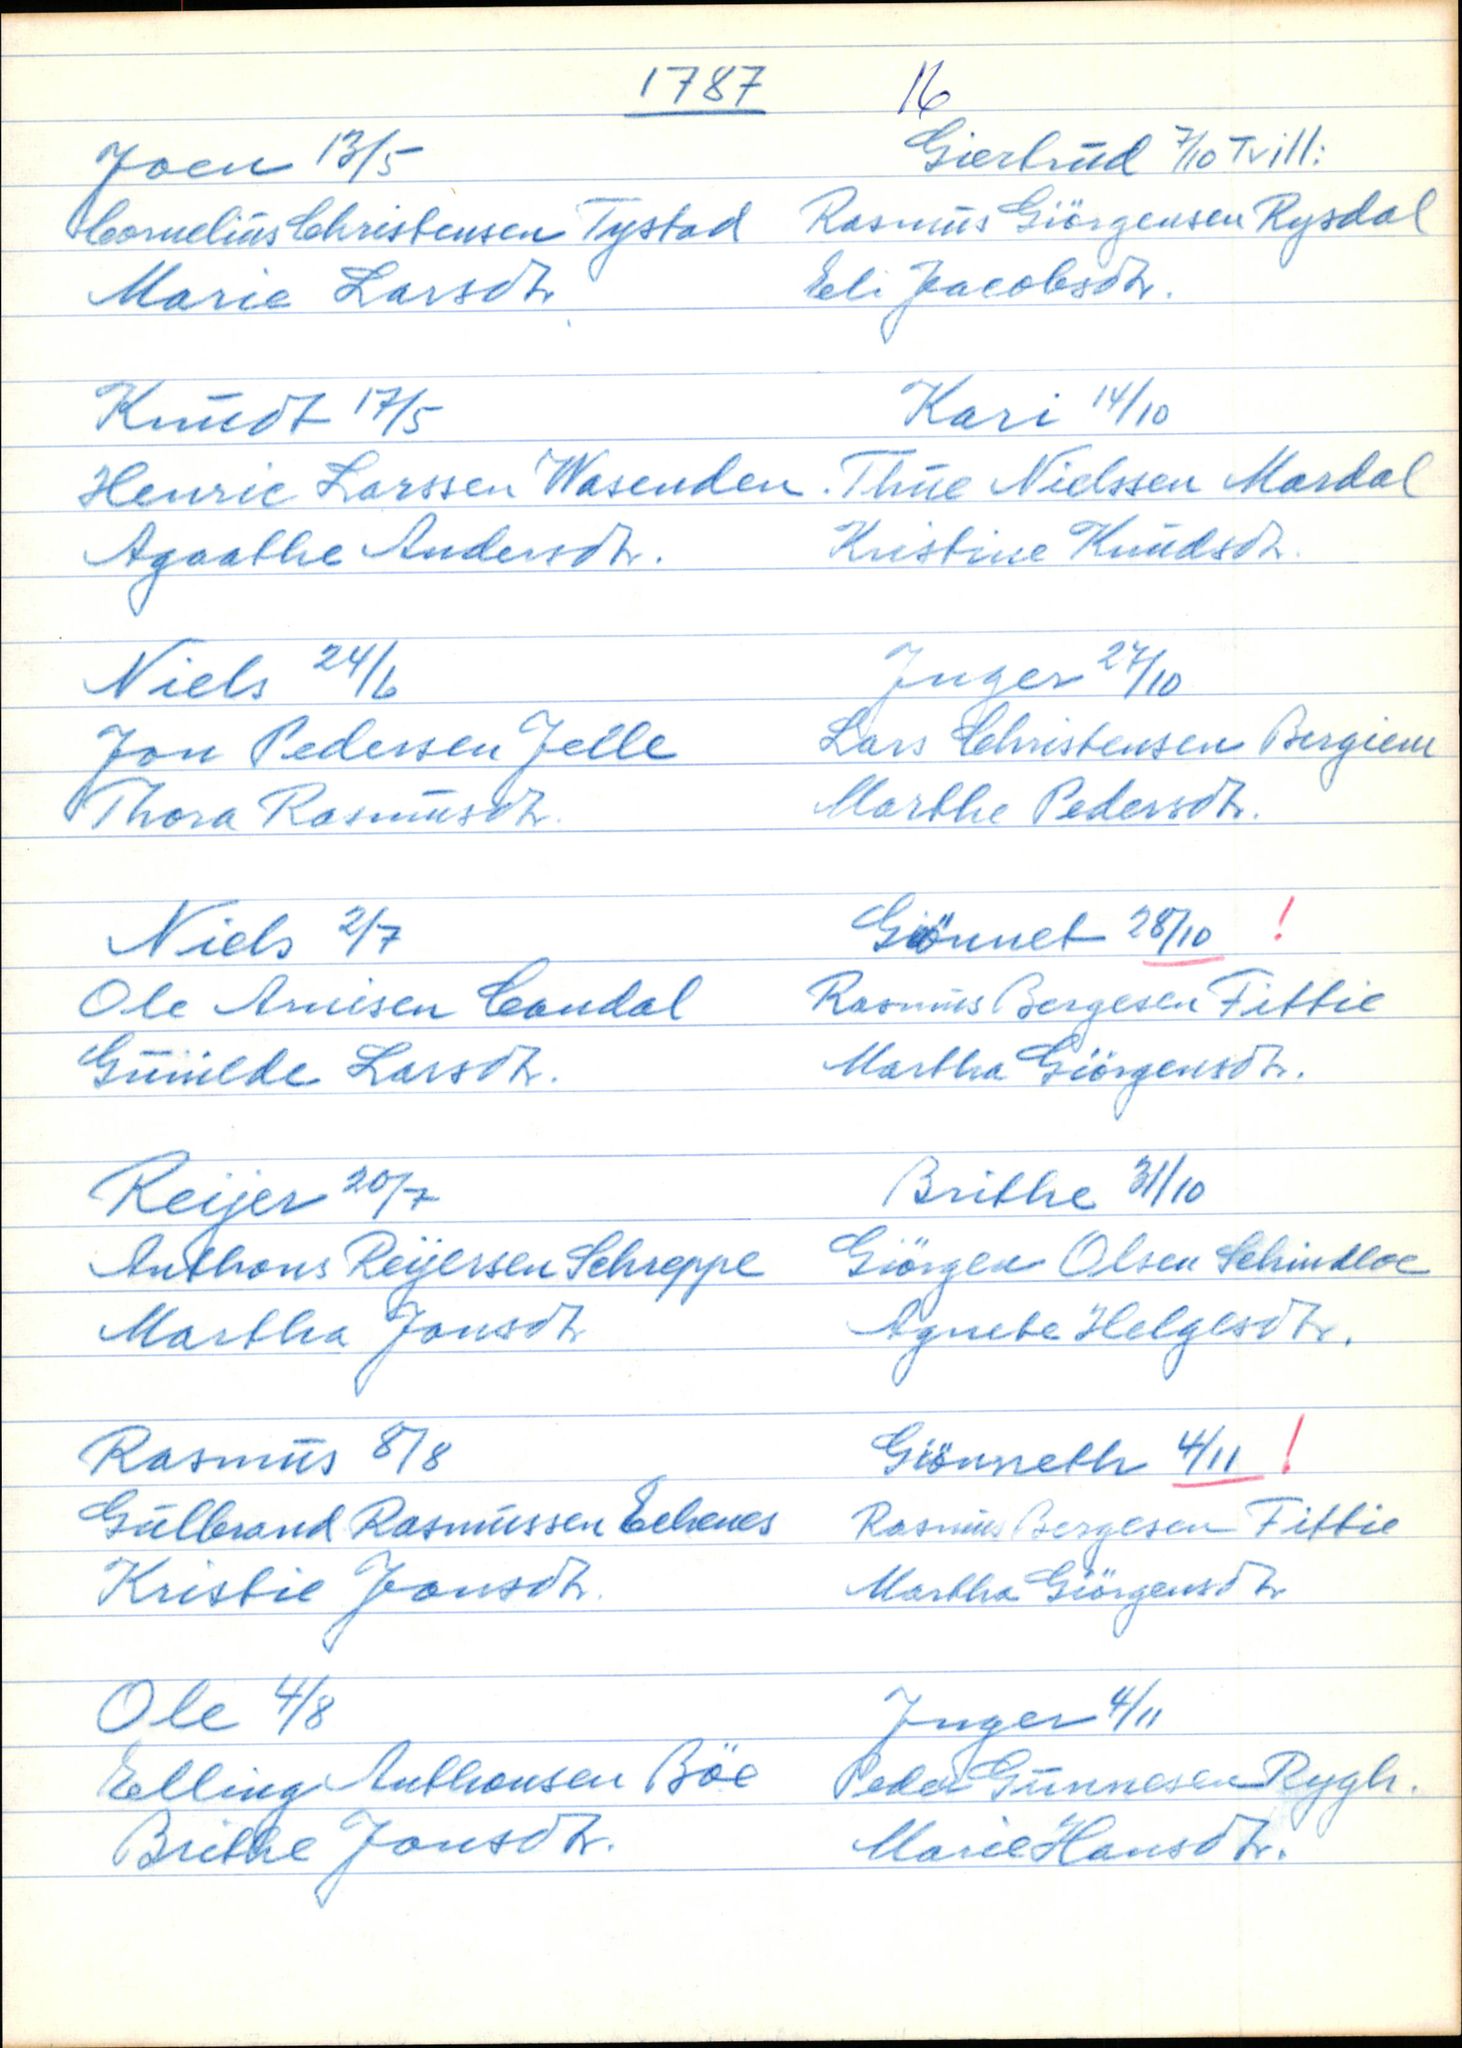 1787
16
Joen 13/5
Cornelius Christensen Tystad
Marie Larsdtr
Knudt 17/5
Henric Larssen Wasenden.
Agaathe Andersdtr.
Niels 24/6
Jon Pedersen Jelle
Thora Rasmusdtr.
Niels 2/7
Ole Arnisen Candal
Gunilde Larsdtr.
Reijer 20/7
Anthons Reijersen Schreppe
Martha Jonsdtr
Rasmus 8/8
Gulbrand Rasmussen Echenes
Kristie Jonsdtr.
Ole 4/8
Elling Anthonsen Böe
Brithe Jonsdtr.
Giertrud 7/10 Tvill:
Rasmus Giörgensen Rysdal
Eli Jacobsdtr.
Kari 14/10
Thue Nielssen Mardal
Kristine Knudsdtr.
Inger 27/10
Lars Christensen Bergiem
Marthe Pedersdtr.
Giönnet 28/10 !
Rasmus Bergesen Fittie
Martha Giörgensdtr.
Brithe 31/10
Giörgen Olsen Schindloe
Agnete Helgesdtr.
Giönneth 4/11 !
Rasmus Bergesen Fittie
Martha Giörgensdtr
Inger 4/11
Peder Gunnesen Rygh.
Marie Hansdtr.